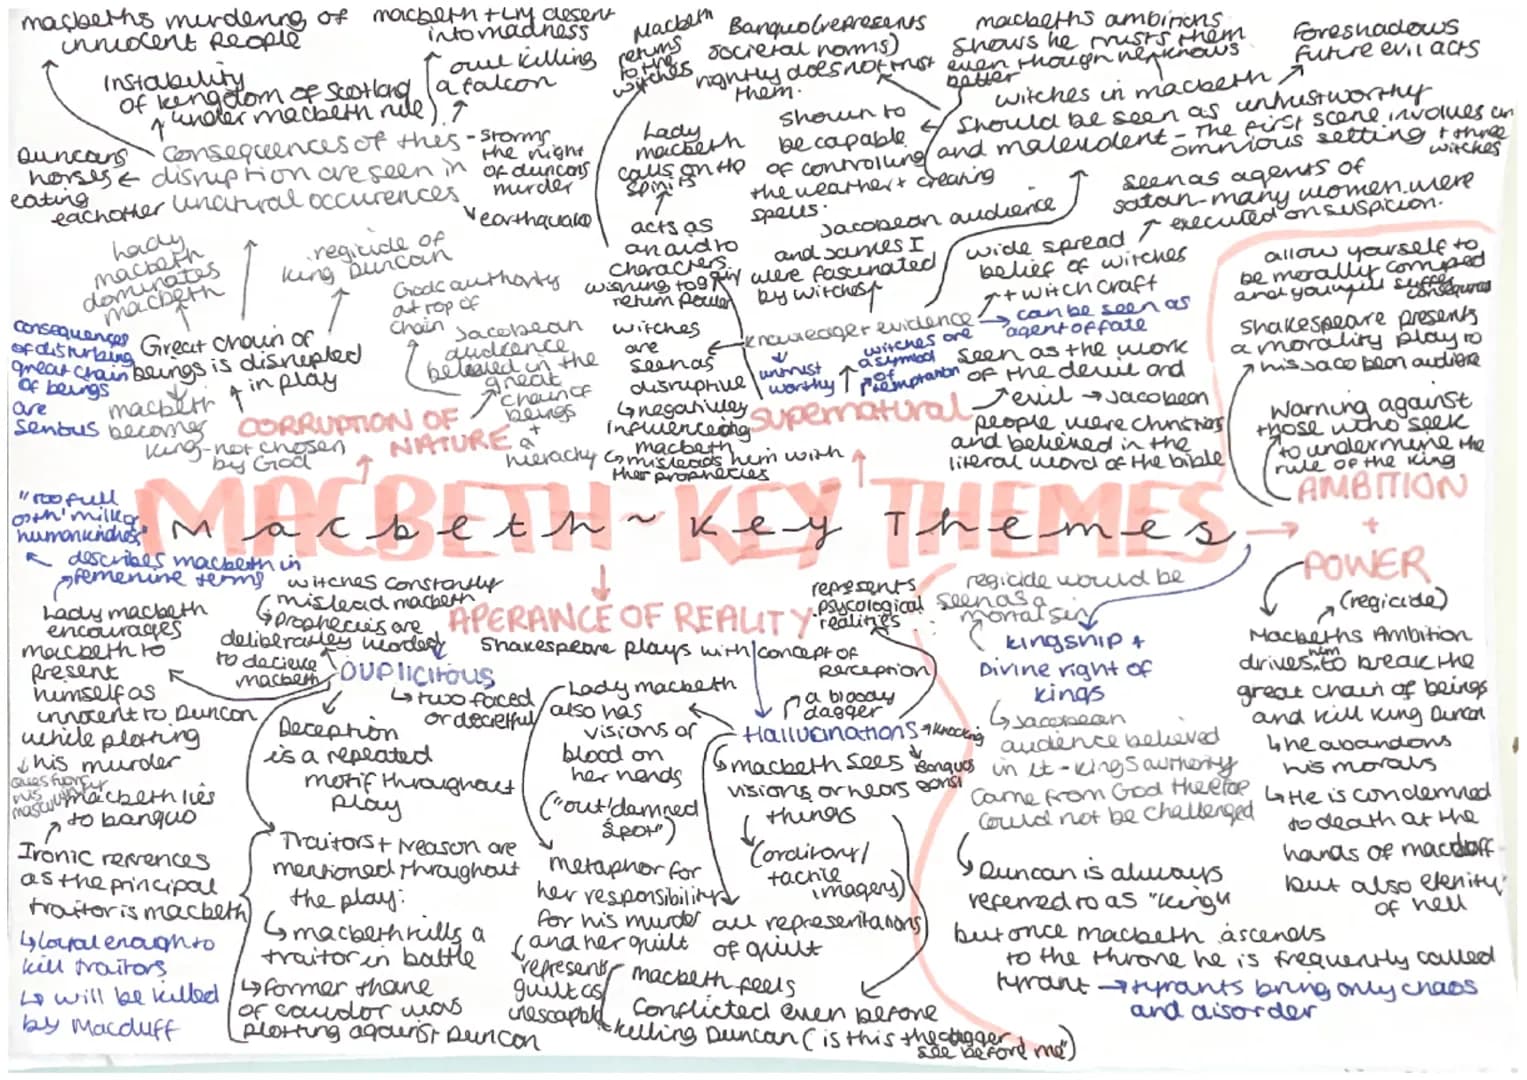 macbeths murdering of
innocent people
macbeth + LM desent
into madness
owl killing
a falcon
Instability
of kingdom of Scotland
under macbeth rule
Consequences of thes
disruption are seen in
unatural occurences
- storms
the night
of duncans
murder
earthquake
Duncans
horses
eating
eachother
Macbeth
returns
to the
witches
Banquo (represents
societal norms)
rightly does not trust
them.
macbeths ambitions
shows he trusts them
even though he knows
better
Foreshadows
future evil acts
witches in macbeth
should be seen as untrustworthy
and malevolent - The first scene involves an
omnious setting + three
witches
shown to
be capable
of controlling
the weather + creating
spells.
Lady
macbeth
calls on the
spirits
acts as
an aid to
characters
wishing to gain
return power
Jacobean audience
and James I
were fascinated
by witches
seen as agents of
satan - many women were
executed on suspicion.
wide spread
belief of witches
+ witch craft
can be seen as
agent of fate
evidence
untrust
worthy
witches are
a symbol
of
temptation
seen as the work
of the devil and
evil → Jacobean
people were christians
and believed in the
literal word of the bible
witches
are
seen as
disruptive
↳ negativley
influenceing
macbeth
↳ misleads him with
ther prophecies
SUPERNATURAL
Lady
macbeth
dominates
macbeth
regicide of
king Duncan
Gods authority
at top of
chain
Jacobean
audience
believed in the
great
chain of
beings
+
a
hierachy
consequences
of disturbing
great chain
of beings
are
serious
Great chain of
beings is disrupted
in play
macbeth
becomes
king - not chosen
by God
CORRUPTION OF
NATURE
allow yourself to
be morally corrupted
and you will suffer
consequences
Shakespeare presents
a morality play to
his Jacobean audience
Warning against
those who seek
to undermine the
rule of the King
AMBITION
+
POWER
MACBETH - KEY THEMES
Macbeth ~ Key Themes
"too full
o'th' milk of
human kindness"
describes macbeth in
femenine terms
Lady macbeth
encourages
macbeth to
present
himself as
innocent to Duncan
while plotting
↳ his murder
questions
his
masculinity
macbeth lies
to banquo
Ironic refrences
as the principal
traitor is macbeth
↳ Loyal enough to
kill traitors
↳ will be killed
by Macduff
witches constantly
mislead macbeth
↳ prophecies are
deliberatley worded
to decieve
macbeth
DUPLICITOUS
↳ two faced
or deceitful
Deception
is a repeated
motif throughout
play
Traitors + treason are
mentioned throughout
the play:
↳ macbeth kills a
traitor in battle
↳ Former thane
of cawdor was
plotting against Duncan
APERANCE OF REALITY
Shakespeare plays with concept of
perception
represents
psycological
realities
Lady macbeth
also has
visions of
blood on
her hands
("out damned
spot")
metaphor for
her responsibility
for his murder
and her guilt
represents
guilt as
inescapable
a bloody
dagger
Hallucinations
knocking
banquos
↳ macbeth sees
visions or hears
things
tactile
imagery)
all representations
of guilt
macbeth feels
conflicted even before
killing Duncan (is this the dagger
see before me")
regicide would be
seen as a
mortal sin
Kingship +
Divine right of
kings
↳ Jacobean
audience believed
in it - kings authority
came from God therefore
could not be challenged
↳ Duncan is always
referred to as "king"
but once macbeth ascends
to the throne he is frequently called
tyrant → tyrants bring only chaos
and disorder
(regicide)
Macbeths Ambition
drives him to break the
great chain of beings
and kill king Duncan
↳ he abandons
his morals
↳ He is condemned
to death at the
hands of macduff
but also eternity
of hell